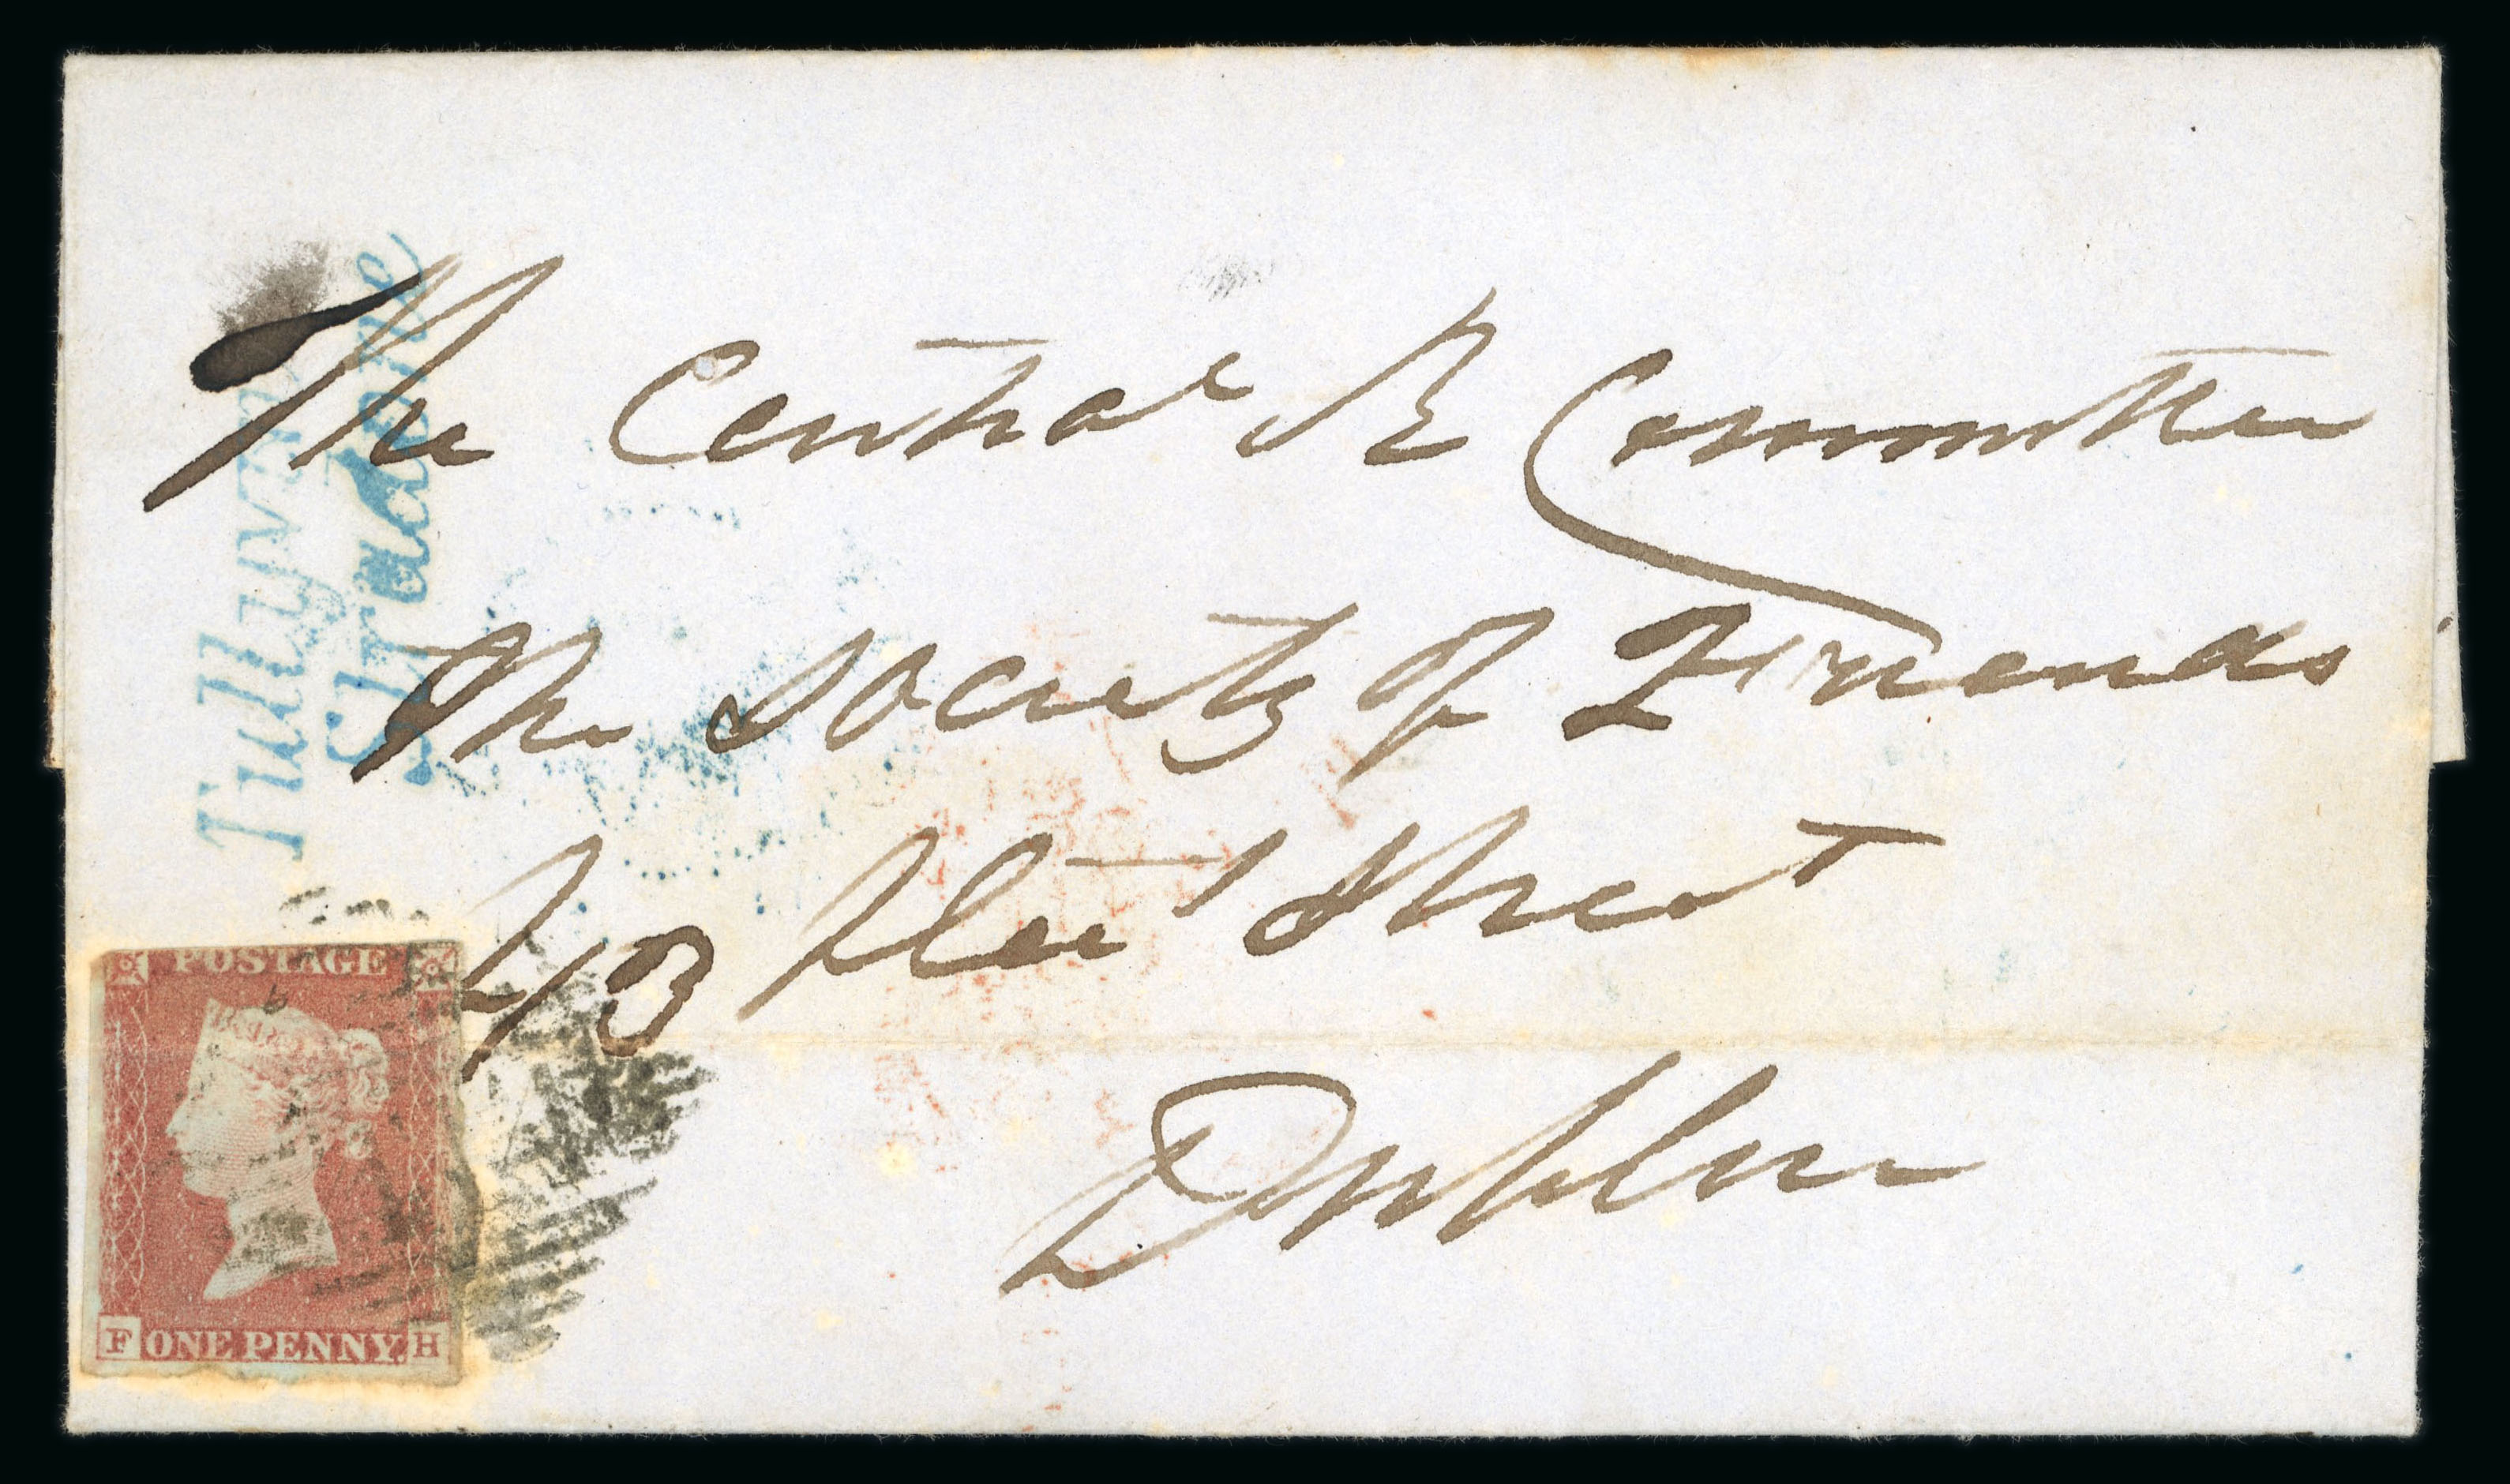 The Central R Committee
The Society of Friends
43 Fleet Street
Dublin
Tullyvin
Stradone
POSTAGE
F ONE PENNY. H